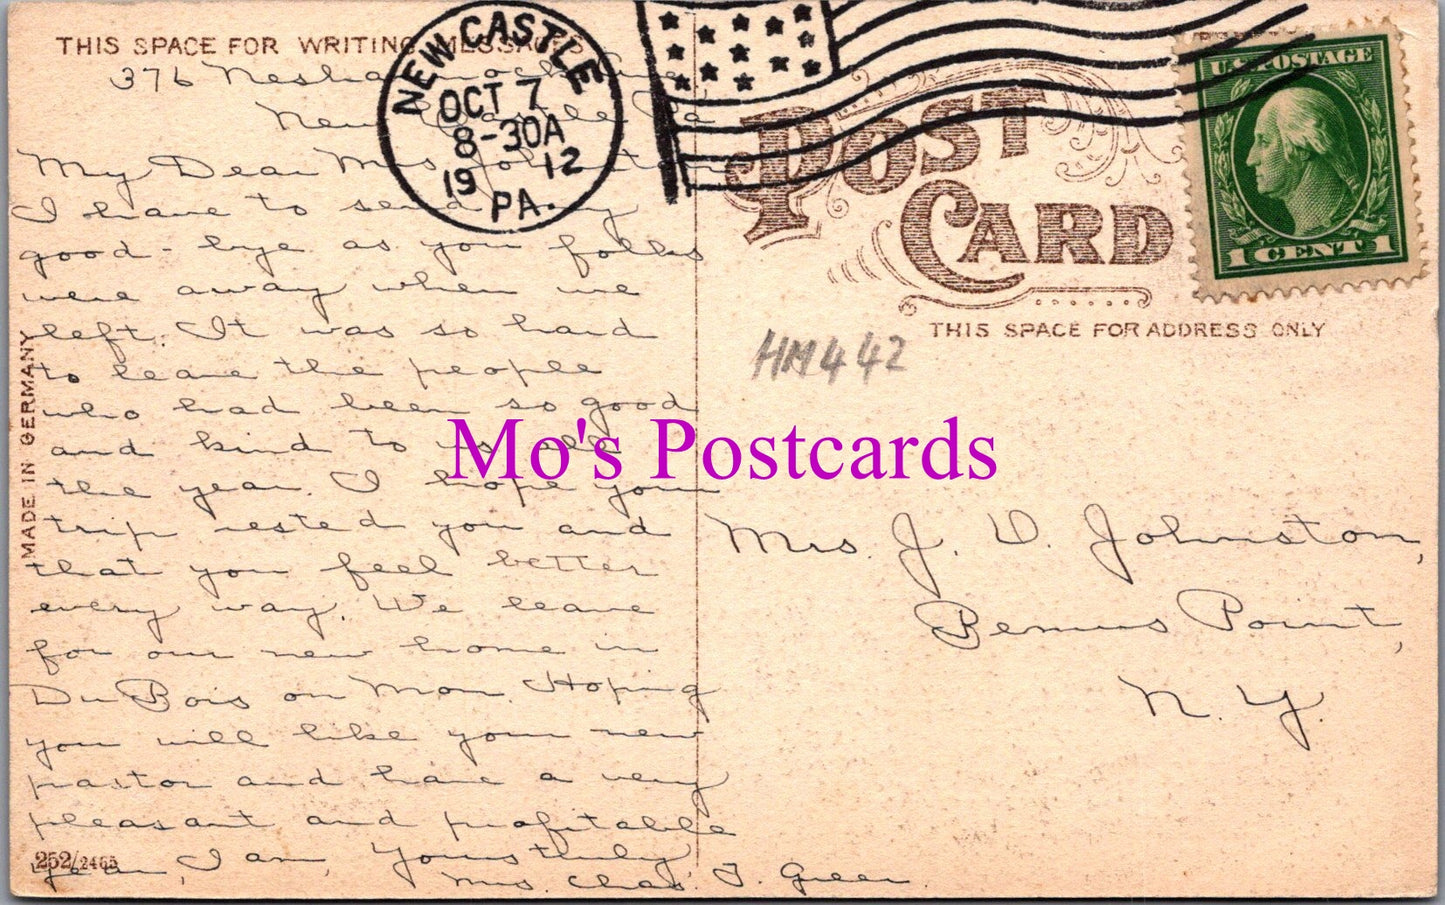 THIS SPACE FOR WRITING MESSAGES
376 Neshannock Ave
New Castle Pa
NEW CASTLE
OCT 7
8-30A
19 12
PA.
U.S. POSTAGE
1 CENT 1
POST
CARD
THIS SPACE FOR ADDRESS ONLY
HM442
MADE IN GERMANY
My Dear Mrs Johnston
I have to send my
good-bye as you folks
were away when we
left. It was so hard
to leave the people
who had been so good
and kind to us all
the year. I hope your
trip rested you and
that you feel better
every way. We leave
for our new home in
Du Bois on Mon. Hoping
you will like your new
pastor and have a very
pleasant and profitable
year, I am, Yours truly
Mrs. Chas. T. Green.
252/2465
Mo's Postcards
Mrs. J. D. Johnston,
Bemus Point,
N. Y.